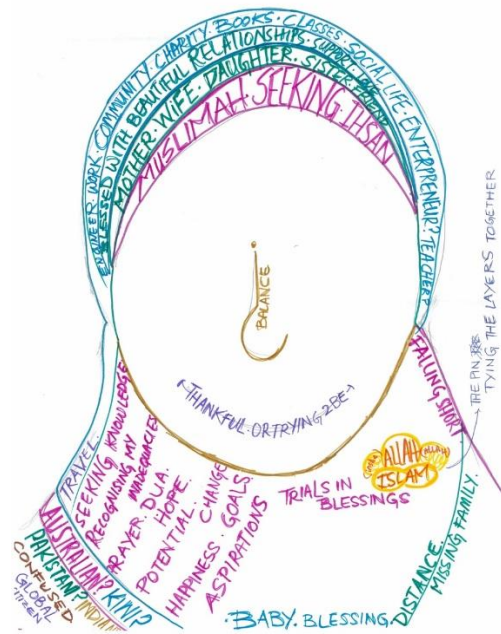 ENGINEER. WORK. COMMUNITY. CHARITY. BOOKS. CLASSES. SOCIAL LIFE. ENTERPRENEUR? TEACHER?
BLESSED WITH BEAUTIFUL RELATIONSHIPS. SUPPORT.
MOTHER. WIFE. DAUGHTER. SISTER. FRIEND
MUSLIMAH. SEEKING. IHSAN
BALANCE
THANKFUL. OR TRYING 2 BE
FALLING SHORT
THE PIN,
TYING THE LAYERS TOGETHER
ALLAH
ISLAM
TRIALS IN
BLESSINGS
TRAVEL.
SEEKING KNOWLEDGE
RECOGNISING MY
INADEQUACIES
PRAYER. DUA.
HOPE.
POTENTIAL. CHANGE
HAPPINESS. GOALS.
ASPIRATIONS
AUSTRALIAN? KIWI?
PAKISTANI?
INDIAN
CONFUSED
GLOBAL
CITIZEN
BABY. BLESSING.
DISTANCE.
MISSING FAMILY.